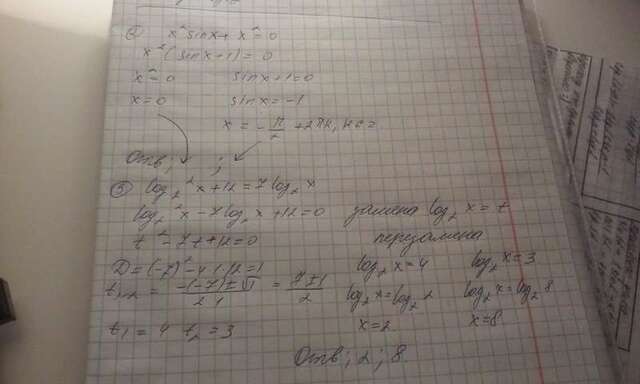 ② x² sinx + x² = 0
x² (sinx + 1) = 0
x² = 0 sinx + 1 = 0
x = 0 sinx = -1
x = -π/2 + 2πk, k ∈ Z
Отв; ;
③ log₂² x + 12 = 7 log₂ x
log₂² x - 7 log₂ x + 12 = 0 замена log₂ x = t
t² - 7t + 12 = 0 перезамена
D = (-7)² - 4·1·12 = 1 log₂ x = 4 log₂ x = 3
t₁,₂ = -(-7) ± √1 / 2·1 = 7 ± 1 / 2 log₂ x = log₂ 2 log₂ x = log₂ 8
t₁ = 4 t₂ = 3 x = 2 x = 8
Отв; 2; 8